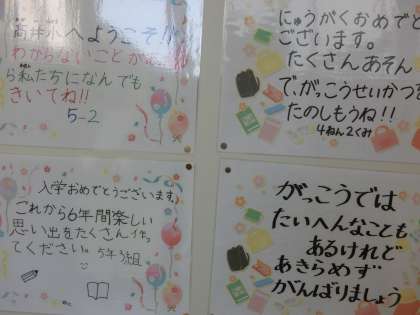 高井小へようこそ!!
わからないことが
ら私たちになんでも
きいてね!!
5-2
にゅうがくおめで
ございます。
たくさんあそん
で、がっこうせいかつを
たのしもうね!!
4ねん2くみ
入学おめでとうございます。
これから6年間楽しい
思い出をたくさん作っ
てください。 5年3組
がっこうでは
たいへんなことも
あるけれど
あきらめず
がんばりましょう